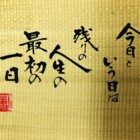 今日と
いう日は
残りの
人生の
最初の
一日